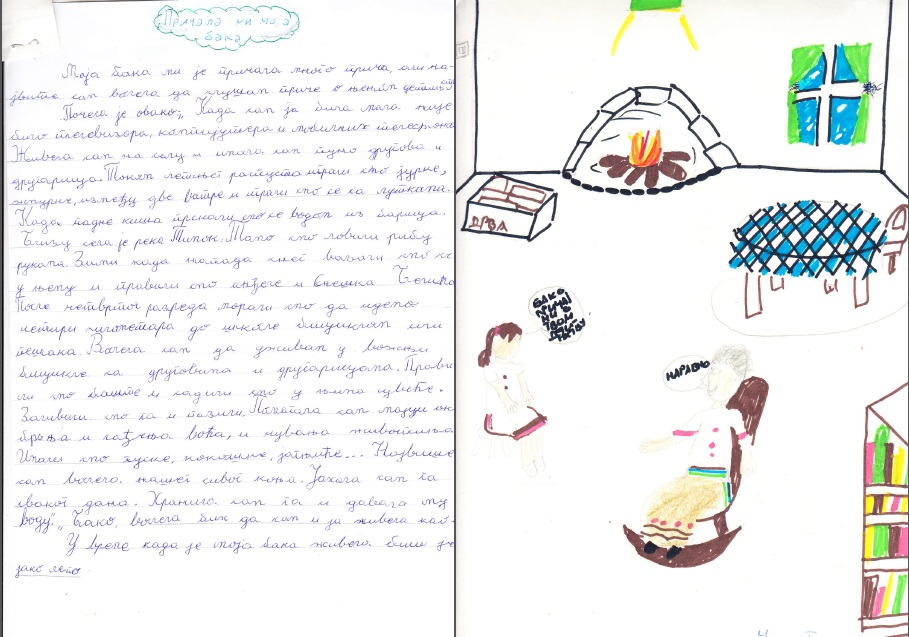 Причала ми моја
бака
Моја бака ми је причала много прича, али нај-
више сам волела да слушам приче о њеним детињств
Почела је овако: „Када сам ја била мала није
било телевизора, компјутера и мобилних телефона.
Живела сам на селу и имала сам пуно другова и
другарица. Током летњег распуста играли смо јурке,
жмурке, између две ватре и играли смо се са луткама.
Када падне киша прскали смо се водом из барица.
Близу села је река Тимок. Тамо смо ловили рибу
рукама. Зими када напада снег ваљали смо се
у њему и правили смо анђеле и Снешка Белића
После четвртог разреда морали смо да идемо
четири километара до школе бициклом или
пешака. Волела сам да уживам у вожњи
бицикле са друговима и другарицама. Прави-
ли смо баште и садили смо у њима цвеће.
Заливали смо га и пазили. Помагала сам мајци око
брања и сађења воћа, и чувања животиња
Имали смо гуске, кокошке, јагњиће... Највише
сам волела нашег сивог коња. Јахала сам га
сваког дана. Хранила сам га и давала му
воду“. „Бако, волела бих да сам и ја живела кад-
У време када је моја бака живела било је
јако лепо.
ДРВА
БАКО
ПРИЧАЈ
МИ О
ТВОМ
НАРАВНО